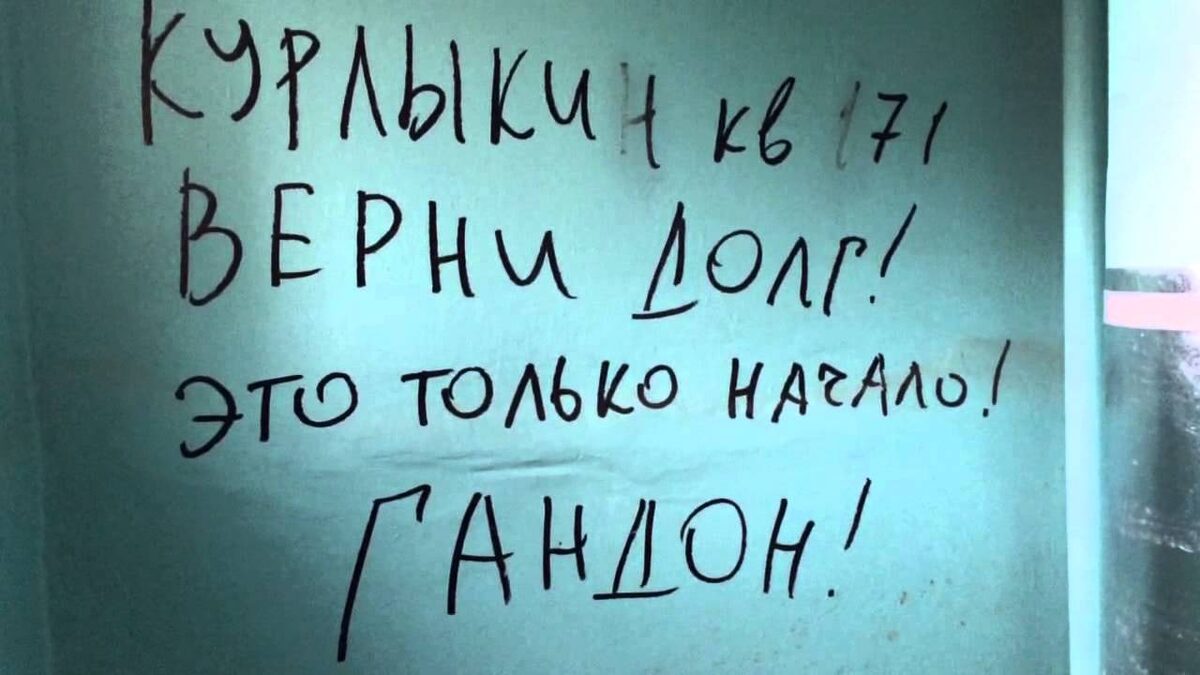 КУРЛЫКИН кв 171
ВЕРНИ ДОЛГ!
ЭТО ТОЛЬКО НАЧАЛО!
ГАНДОН!